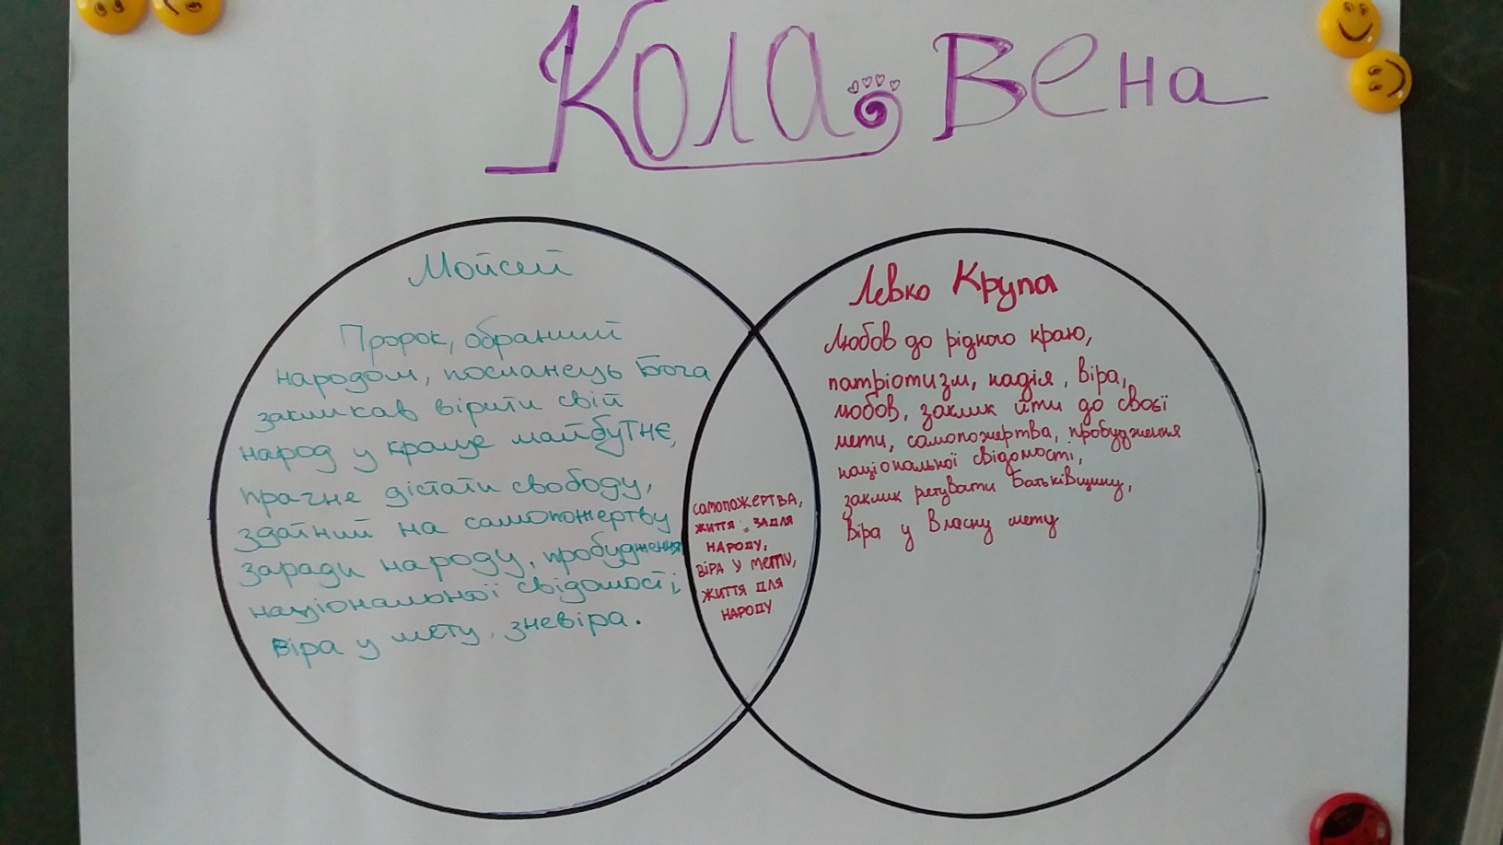 Кола Вена
Мойсей
Пророк, обраний
народом, посланець Бога
закликав вірити свій
народ у краще майбутнє,
прагне дістати свободу,
здатний на самопожертву
заради народу, пробудження
національної свідомості,
віра у мету, зневіра.
самопожертва,
життя задля
народу,
віра у мету,
життя для
народу
Левко Крупа
Любов до рідного краю,
патріотизм, надія, віра,
любов, заклик йти до своєї
мети, самопожертва, пробудження
національної свідомості,
заклик рятувати Батьківщину,
віра у власну мету